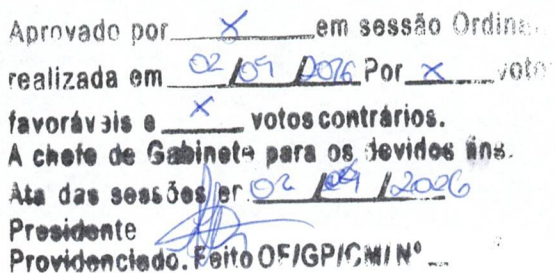 Aprovado por X em sessão
realizada em 02/09/2026 Por X voto
favoráveis e X votos contrários.
A chefe de Gabinete para os devidos fins.
Ata das sessões em 02/09/2026
Presidente
Providenciado. Feito OF/GP/CMI Nº